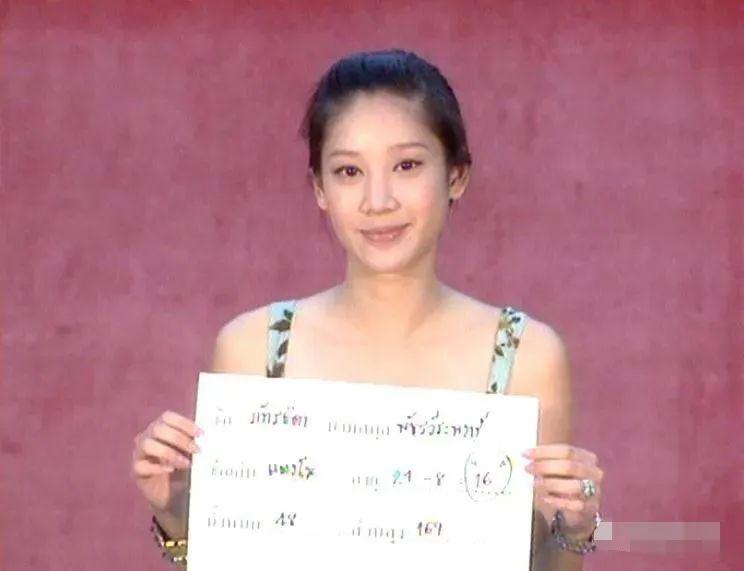 ชื่อ ภัทรธิดา นามสกุล พัชรวีระพงษ์
ชื่อเล่น แตงโม อายุ 24 -8 = "16"
น้ำหนัก 48 ส่วนสูง 169